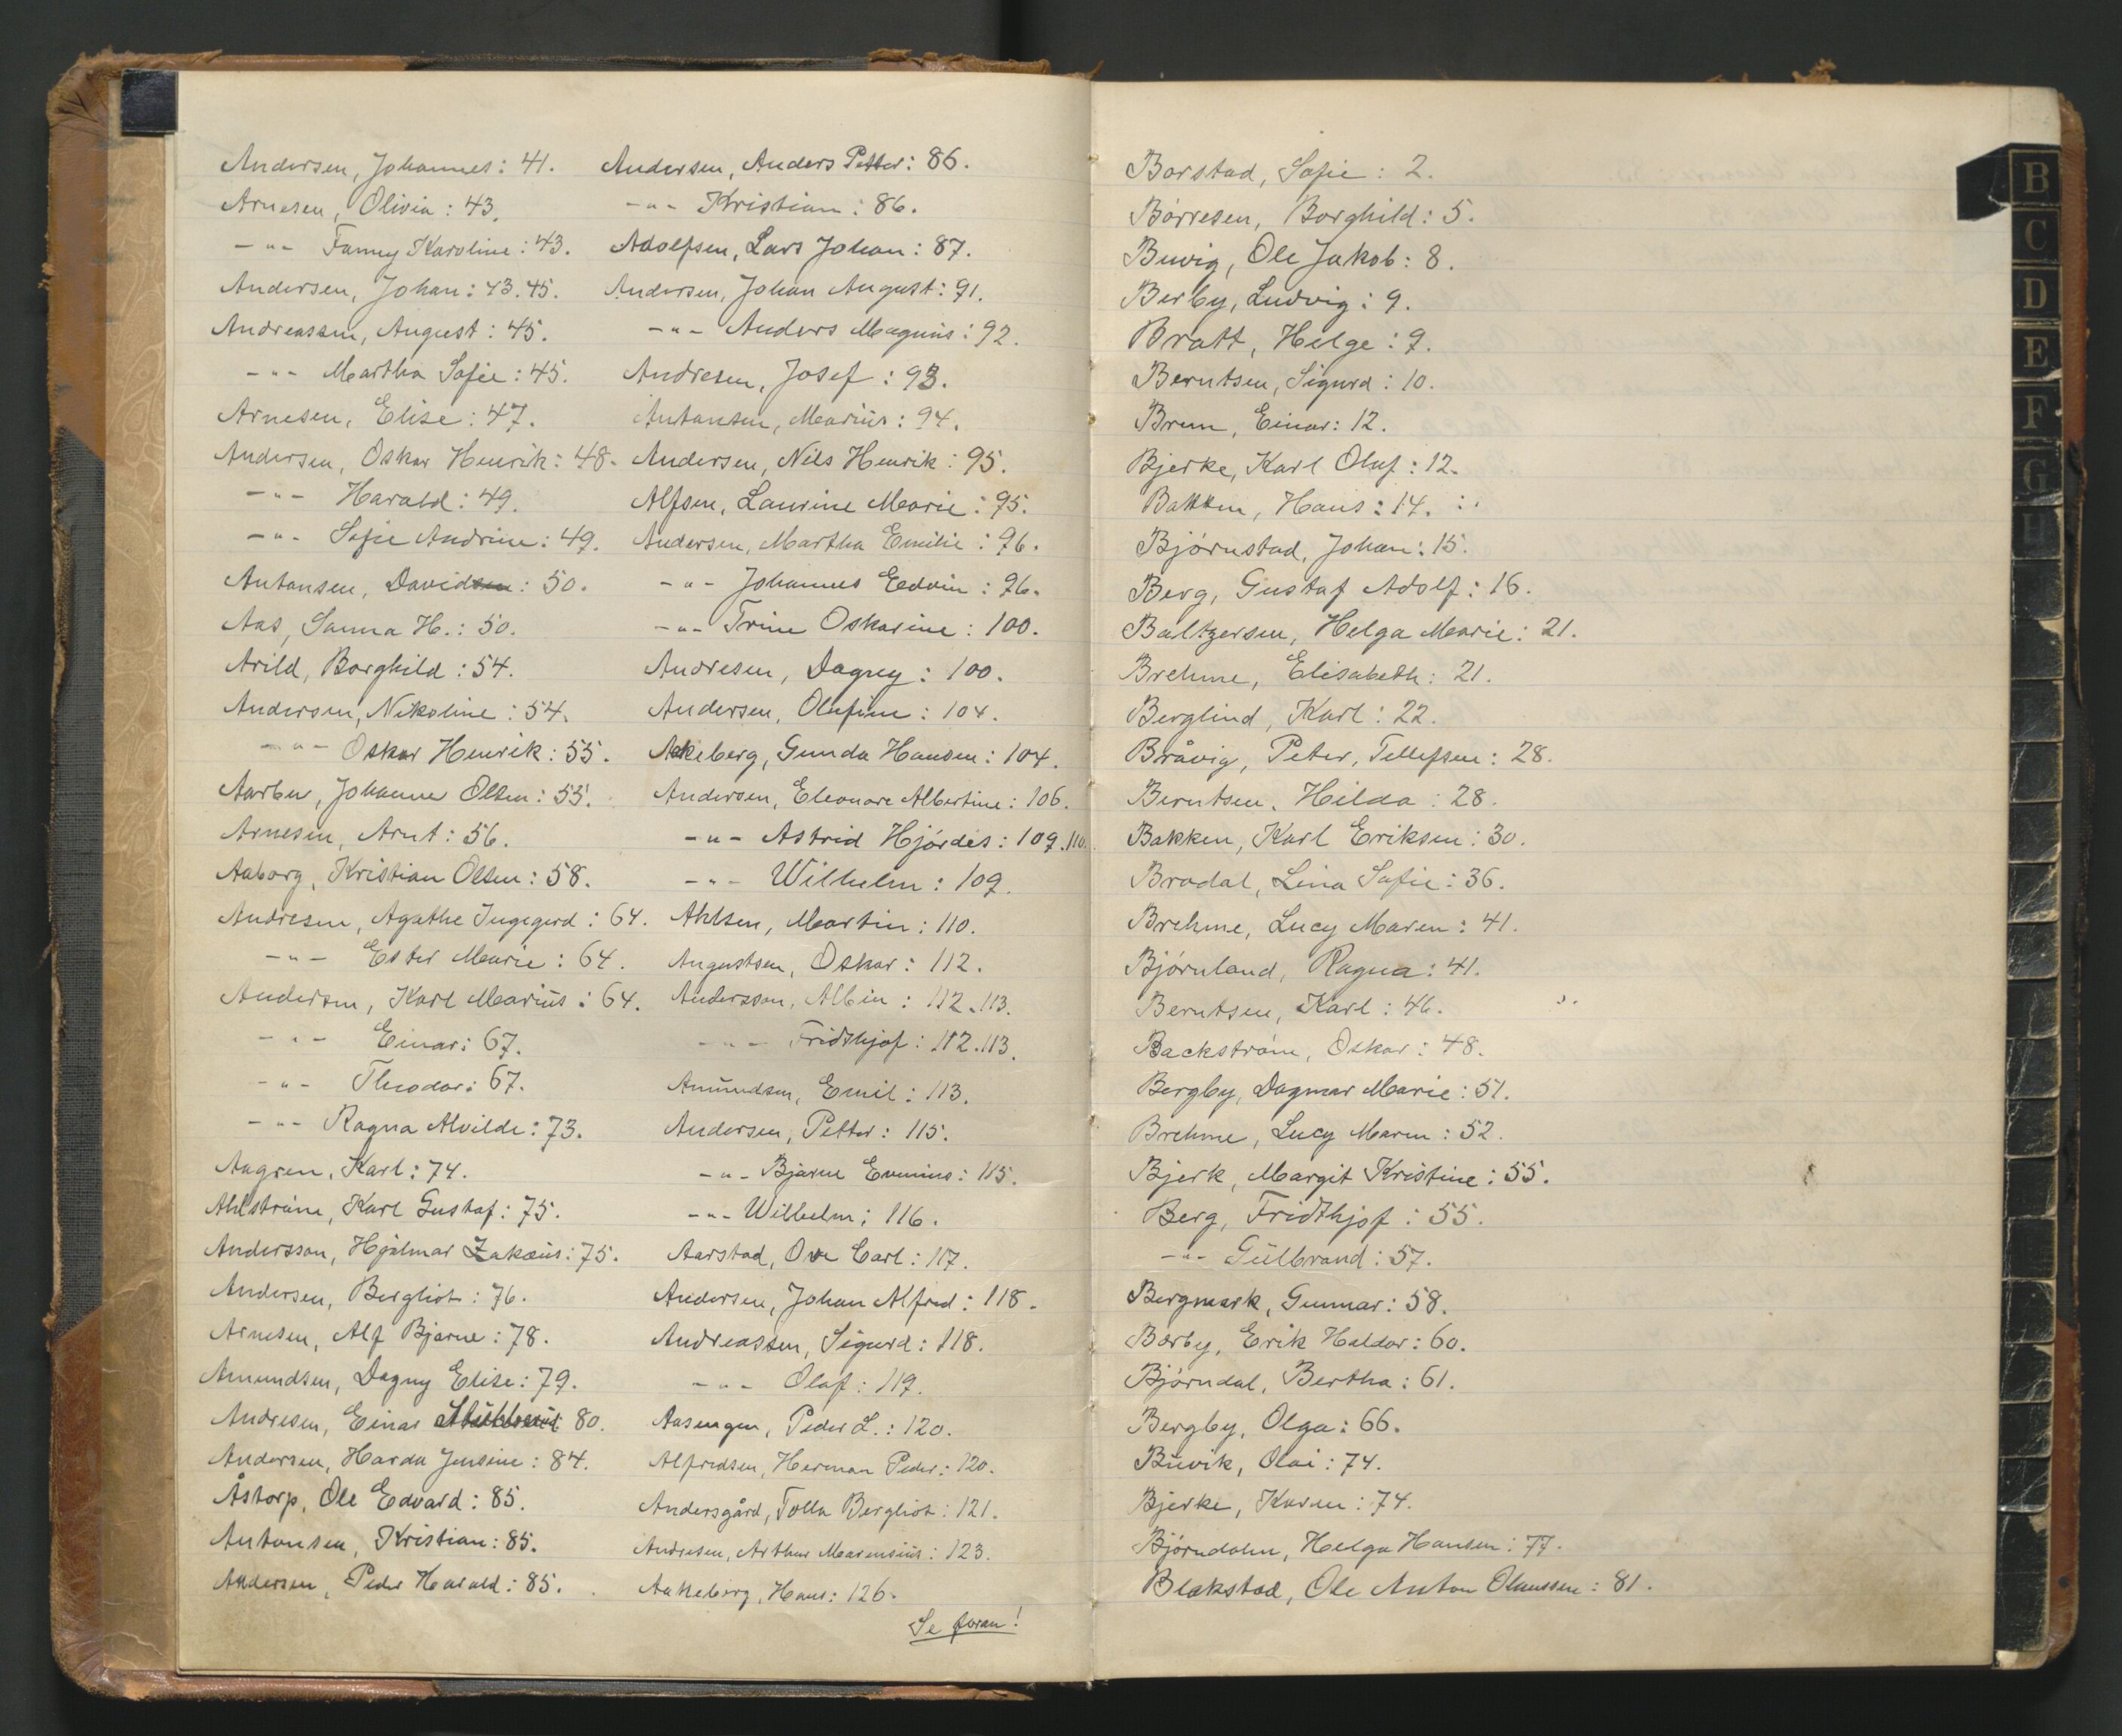 Andersen, Johannes: 41.
Arnesen, Olivia: 43.
-"- Fanny Karoline: 43.
Andersen, Johan: 43.45.
Andreassen, August: 45.
-"- Martha Sofie: 45.
Arnesen, Elise: 47.
Andersen, Oskar Henrik: 48.
-"- Harald: 49.
-"- Sofie Andrine: 49.
Antonsen, Davidsen: 50.
Aas, Sanna H.: 50.
Arild, Borghild: 54.
Andersen, Nikoline: 54.
-"- Oskar Henrik: 55.
Aarbu, Johanne Olsen: 55.
Arnesen, Arnt: 56.
Aaborg, Kristian Olsen: 58.
Andresen, Agathe Ingegerd: 64.
-"- Ester Marie: 64.
Andersen, Karl Marius: 64.
-"- Einar: 67.
-"- Theodor: 67.
-"- Ragna Alvilde: 73.
Aagren, Karl: 74.
Ahlstrøm, Karl Gustaf: 75.
Andersson, Hjalmar Zakæus: 75.
Andersen, Bergliot: 76.
Arnesen, Alf Bjarne: 78.
Amundsen, Dagny Elise: 79.
Andresen, Einar 80.
Andersen, Harda Jensine: 84.
Åstorp, Ole Edvard: 85.
Antonsen, Kristian: 85.
Andersen, Peder Harald: 85.
Andersen, Anders Petter: 86.
-"- Kristian: 86.
Adolfsen, Lars Johan: 87.
Andersen, Johan August: 91.
-"- Anders Magnus: 92.
Andresen, Josef: 93.
Antonsen, Marius: 94.
Andersen, Nils Henrik: 95.
Alfsen, Laurine Marie: 95.
Andersen, Martha Emilie: 96.
-"- Johannes Edvin: 96.
-"- Trine Oskarine: 100.
Andresen, Dagny: 100.
Andersen, Olufine: 104.
Akeberg, Gunda Hansen: 104.
Andersen, Eleonore Albertine: 106.
-"- Astrid Hjørdis: 109.110.
-"- Wilhelm: 109.
Ahlsen, Martin: 110.
Augustsen, Oskar: 112.
Andersson, Albin: 112.113.
-"- Fridthjof: 112.113.
Amundsen, Emil: 113.
Andersen, Petter: 115.
-"- Bjarne Evenius: 115.
-"- Wilhelm: 116.
Aarstad, Ove Carl: 117.
Andersen, Johan Alfred: 118.
Andreassen, Sigurd: 118.
-"- Olaf: 119.
Aasengen, Peder L.: 120.
Alfredsen, Herman Peder: 120.
Andersgård, Tolla Bergliot: 121.
Andresen, Arthur Marensius: 123.
Aakeberg, Hans: 126.
Se foran!
Borstad, Sofie: 2.
Børresen, Borghild: 5.
Buvig, Ole Jakob: 8.
Berby, Ludvig: 9.
Bratt, Helge: 9.
Berntsen, Sigurd: 10.
Brun, Einar: 12.
Bjerke, Karl Oluf: 12.
Bakken, Hans: 14.
Bjørnstad, Johan: 15.
Berg, Gustaf Adolf: 16.
Baltzersen, Helga Marie: 21.
Brehme, Elisabeth: 21.
Berglind, Karl: 22.
Bråvig, Peter, Tellefsen: 28.
Berntsen, Hilda: 28.
Bakken, Karl Eriksen: 30.
Bradal, Lina Sofie: 36.
Brehme, Lucy Maren: 41.
Bjørnland, Ragna: 41.
Berntsen, Karl: 46.
Backstrøm, Oskar: 48.
Bergby, Dagmar Marie: 51.
Brehme, Lucy Maren: 52.
Bjerk, Margit Kristine: 55.
Berg, Fridthjof: 55.
-"- Gulbrand: 57.
Bergmark, Gunnar: 58.
Bærby, Erik Haldor: 60.
Bjørndal, Bertha: 61.
Bergby, Olga: 66.
Buvik, Olai: 74.
Bjerke, Karen: 74.
Bjørndalen, Helga Hansen: 77.
Blakstad, Ole Anton Olaussen: 81.
B
C
D
E
F
G
H